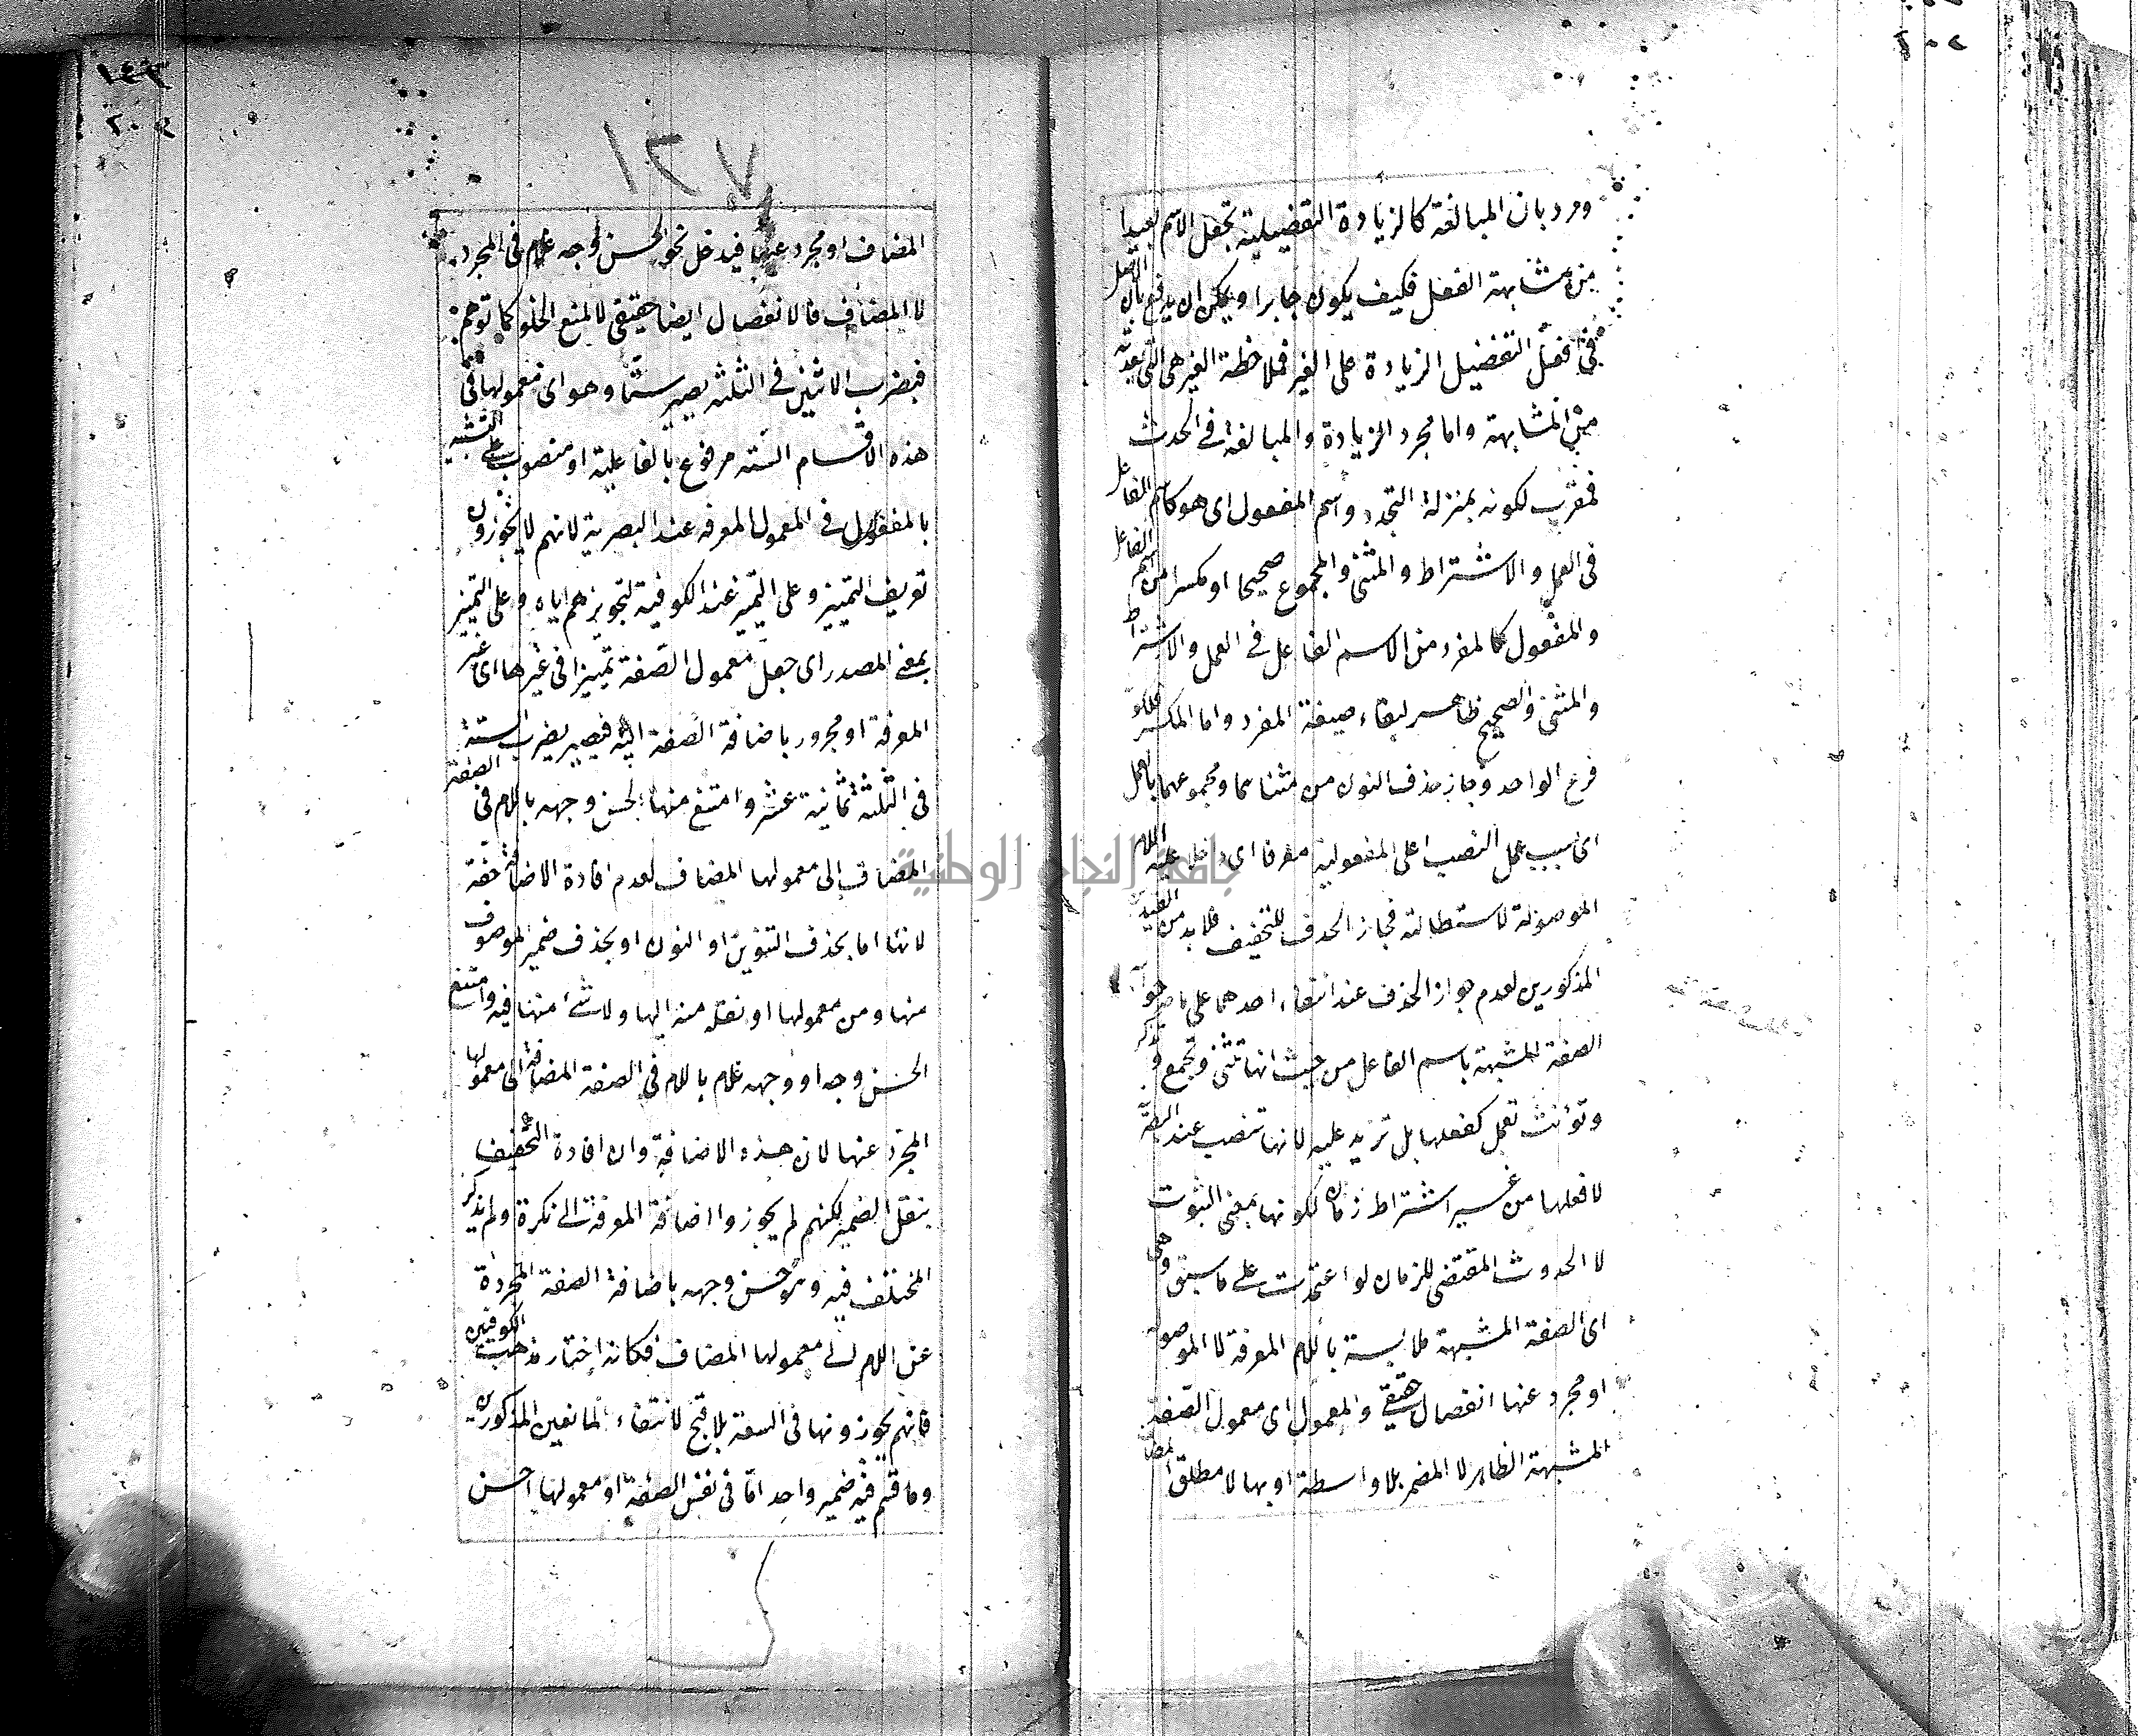 ورد بان المبالغة كالزيادة التفضيلية تجعل الاسم بعيدا
من مشابهة الفعل فكيف يكون جابرا ويمكن ان يدفع بان الاصل
في افعل التفضيل الزيادة على الغير فملاحظة الغير هي التى بعدته
من المشابهة واما مجرد الزيادة والمبالغة في الحدث
فمقرب لكونه بمنزلة التجدد واسم المفعول اى هو كاسم الفاعل
في العمل والاشتراط والمثنى والمجموع صحيحا او مكسرا من اسم الفاعل
والمفعول كالمفرد من الاسم الفاعل في العمل والاشتراط
والمثنى والصحيح ظاهر لبقاء صيغة المفرد واما المكسر فلكونه
فرع الواحد وجاز حذف النون من مثناهما ومجموعهما بالعمل
اى بسبب عمل النصب على المفعولية معرفا اى داخلا عليه اللام
الموصولة لاستطالته فجاز الحذف للتخفيف فلا بد من القيدين
المذكورين لعدم جواز الحذف عند انتفاء احدهما على ما صرحوا به
الصفة المشبهة باسم الفاعل من حيث انها تثنى وتجمع وتذكر
وتؤنث تعمل كفعلها بل تزيد عليه لانها تنصب عند البصرية
لا فعلها من غير اشتراط زمان لكونها بمعنى الثبوت
لا الحدوث المقتضى للزمان لو اعتمدت على ما سبق وهى
اى الصفة المشبهة ملابسة باللام المعرفة لا الموصولة
او مجرد عنها انفصال حقيقي والمعمول اى معمول الصفة
المشبهة الظاهر لا المضمر بلا واسطة او بها لا مطلق
١٢٧
المضاف او مجرد عنها فيدخل نحو الحسن وجه غلام في المجرد
لا المضاف فالانفصال ايضا حقيقى لا لمنع الخلو كما توهم
فبضرب الاثنين في الثلثة يصير ستا وهو اى معمولها في
هذه الاقسام الستة مرفوع بالفاعلية او منصوب على التشبيه
بالمفعول في المعمول المعرفة عند البصرية لانهم لا يجوزون
تعريف التمييز وعلى التميز عند الكوفية لتجويزهم اياه وعلى التمييز
بمعنى المصدر اى جعل معمول الصفة تمييزا في غيرها اى غير
المعرفة او مجرور باضافة الصفة اليه فيصير بضرب الستة
في الثلثة ثمانية عشر وامتنع منها الحسن وجهه باللام في الصفة
المضاف الى معمولها المضاف لعدم افادة الاضافة خفة
لانها اما بحذف التنوين او النون او بحذف ضمير الموصوف
منها ومن معمولها او نقله منه اليها ولا شئ منها فيه وامتنع
الحسن وجه او وجه غلام باللام في الصفة المضافة الى معمولها
المجرد عنها لان هذه الاضافة وان افادة التخفيف
بنقل الضمير لكنهم لم يجوزوا اضافة المعرفة الى نكرة ولم يذكر
المختلف فيه وهو حسن وجهه باضافة الصفة المجردة
عن اللام الى معمولها المضاف فكانه اختار مذهب الكوفيين
فانهم يجوزونها في السعة بلا قبح لانتفاء المانعين المذكورين
وما قسم فيه ضمير واحد اما في نفس الصفة او معمولها احسن
جامعة النجاح الوطنية